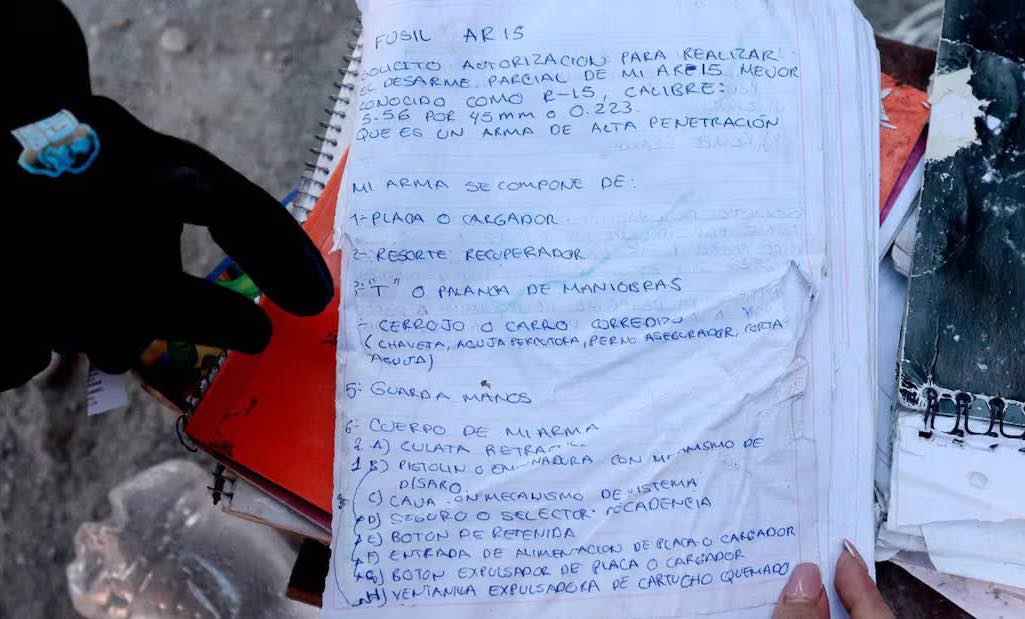 FUSIL AR15
SOLICITO AUTORIZACION PARA REALIZAR
EL DESARME PARCIAL DE MI ARE15 MEJOR
CONOCIDO COMO R-15, CALIBRE:
5.56 POR 45mm O 0.223.
QUE ES UN ARMA DE ALTA PENETRACIÓN
MI ARMA SE COMPONE DE:
1- PLACA O CARGADOR
2- RESORTE RECUPERADOR
"T" O PALANCA DE MANIOBRAS
CERROJO O CARRO CORREDIZO
(CHAVETA, AGUJA PERCUTORA, PERNO ASEGURADOR, PORTA
AGUJA)
5- GUARDA MANOS
6- CUERPO DE MI ARMA
2 A) CULATA
1 B) PISTOLIN O CON DE
DISARO
C) MECANISMO DE SISTEMA
D) SEGURO O SELECTOR
E) BOTON DE RETENIDA
F) ENTRADA DE ALIMENTACION DE PLACA O CARGADOR
G) BOTON EXPULSADOR DE PLACA O CARGADOR
H) VENTANILA EXPULSADORA DE CARTUCHO QUEMADO